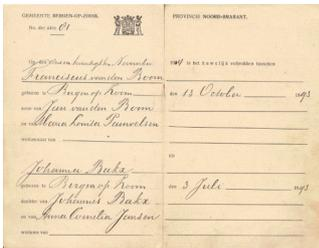 GEMEENTE BERGEN-OP-ZOOM.
No. der akte 61
PROVINCIE NOORD-BRABANT.
Op
November
19 is het huwelijk voltrokken tusschen
Franciscus van den Boom
geboren te Bergen op Zoom den 13 October 1893
zoon van Jan van den Boom
en van Maria Louisa
weduwnaar van
en
Johanna Bakx
geboren te Bergen op Zoom den 3 Juli 1893
dochter van Johannes Bakx
en van Anna Cornelia Jansen
weduwe van